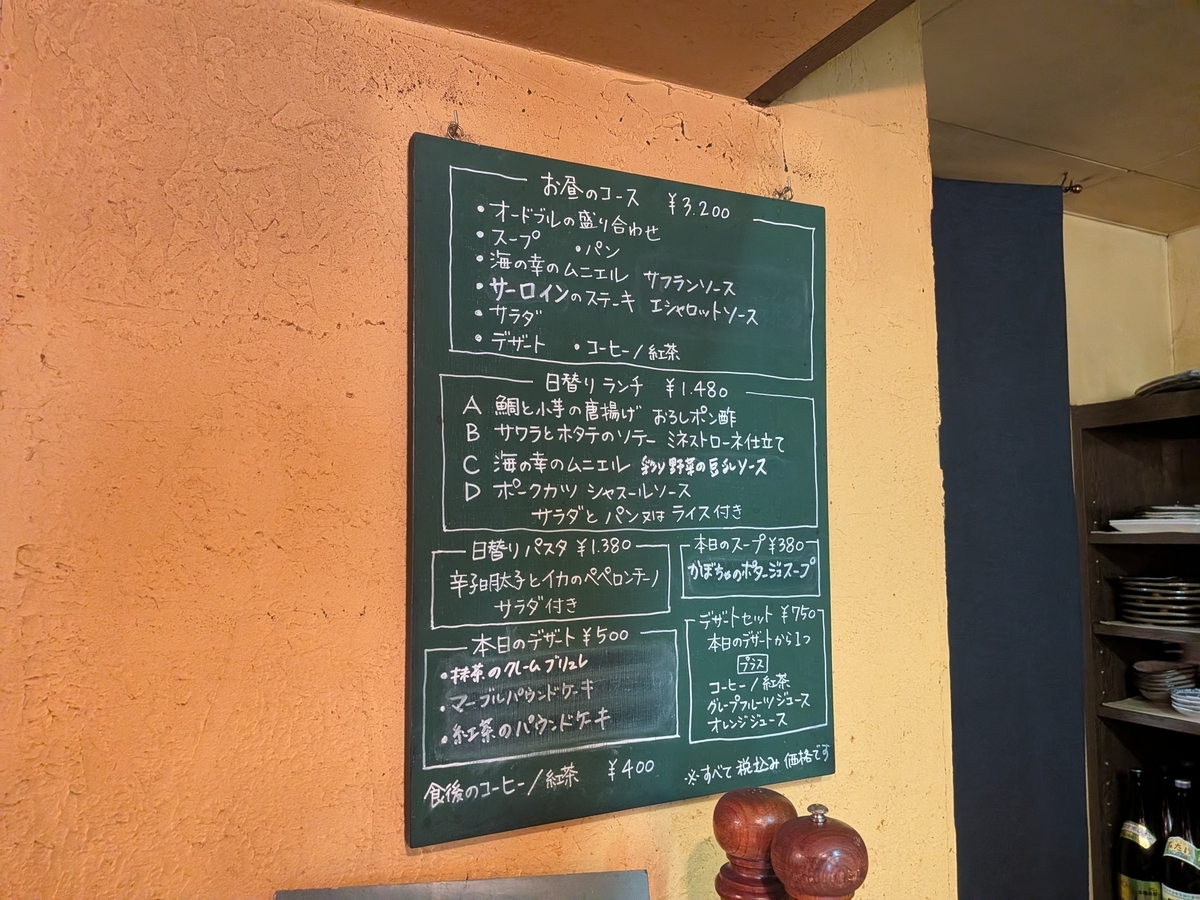 お昼のコース ¥3.200
・オードブルの盛り合わせ
・スープ ・パン
・海の幸のムニエル サフランソース
・サーロインのステーキ エシャロットソース
・サラダ
・デザート ・コーヒー/紅茶
日替り ランチ ¥1.480
A 鯛と小芋の唐揚げ おろしポン酢
B サワラとホタテのソテー ミネストローネ仕立て
C 海の幸のムニエル 彩り野菜の豆乳ソース
D ポークカツ シャスールソース
サラダと パン又は ライス付き
日替り パスタ ¥1.380
辛子明太子とイカのペペロンチーノ
サラダ付き
本日のスープ ¥380
かぼちゃのポタージュスープ
本日のデザート ¥500
・抹茶のクレームブリュレ
・マーブルパウンドケーキ
・紅茶のパウンドケーキ
デザートセット ¥750
本日のデザートから1つ
プラス
コーヒー/紅茶
グレープフルーツジュース
オレンジジュース
食後のコーヒー/紅茶 ¥400
※すべて税込み価格です